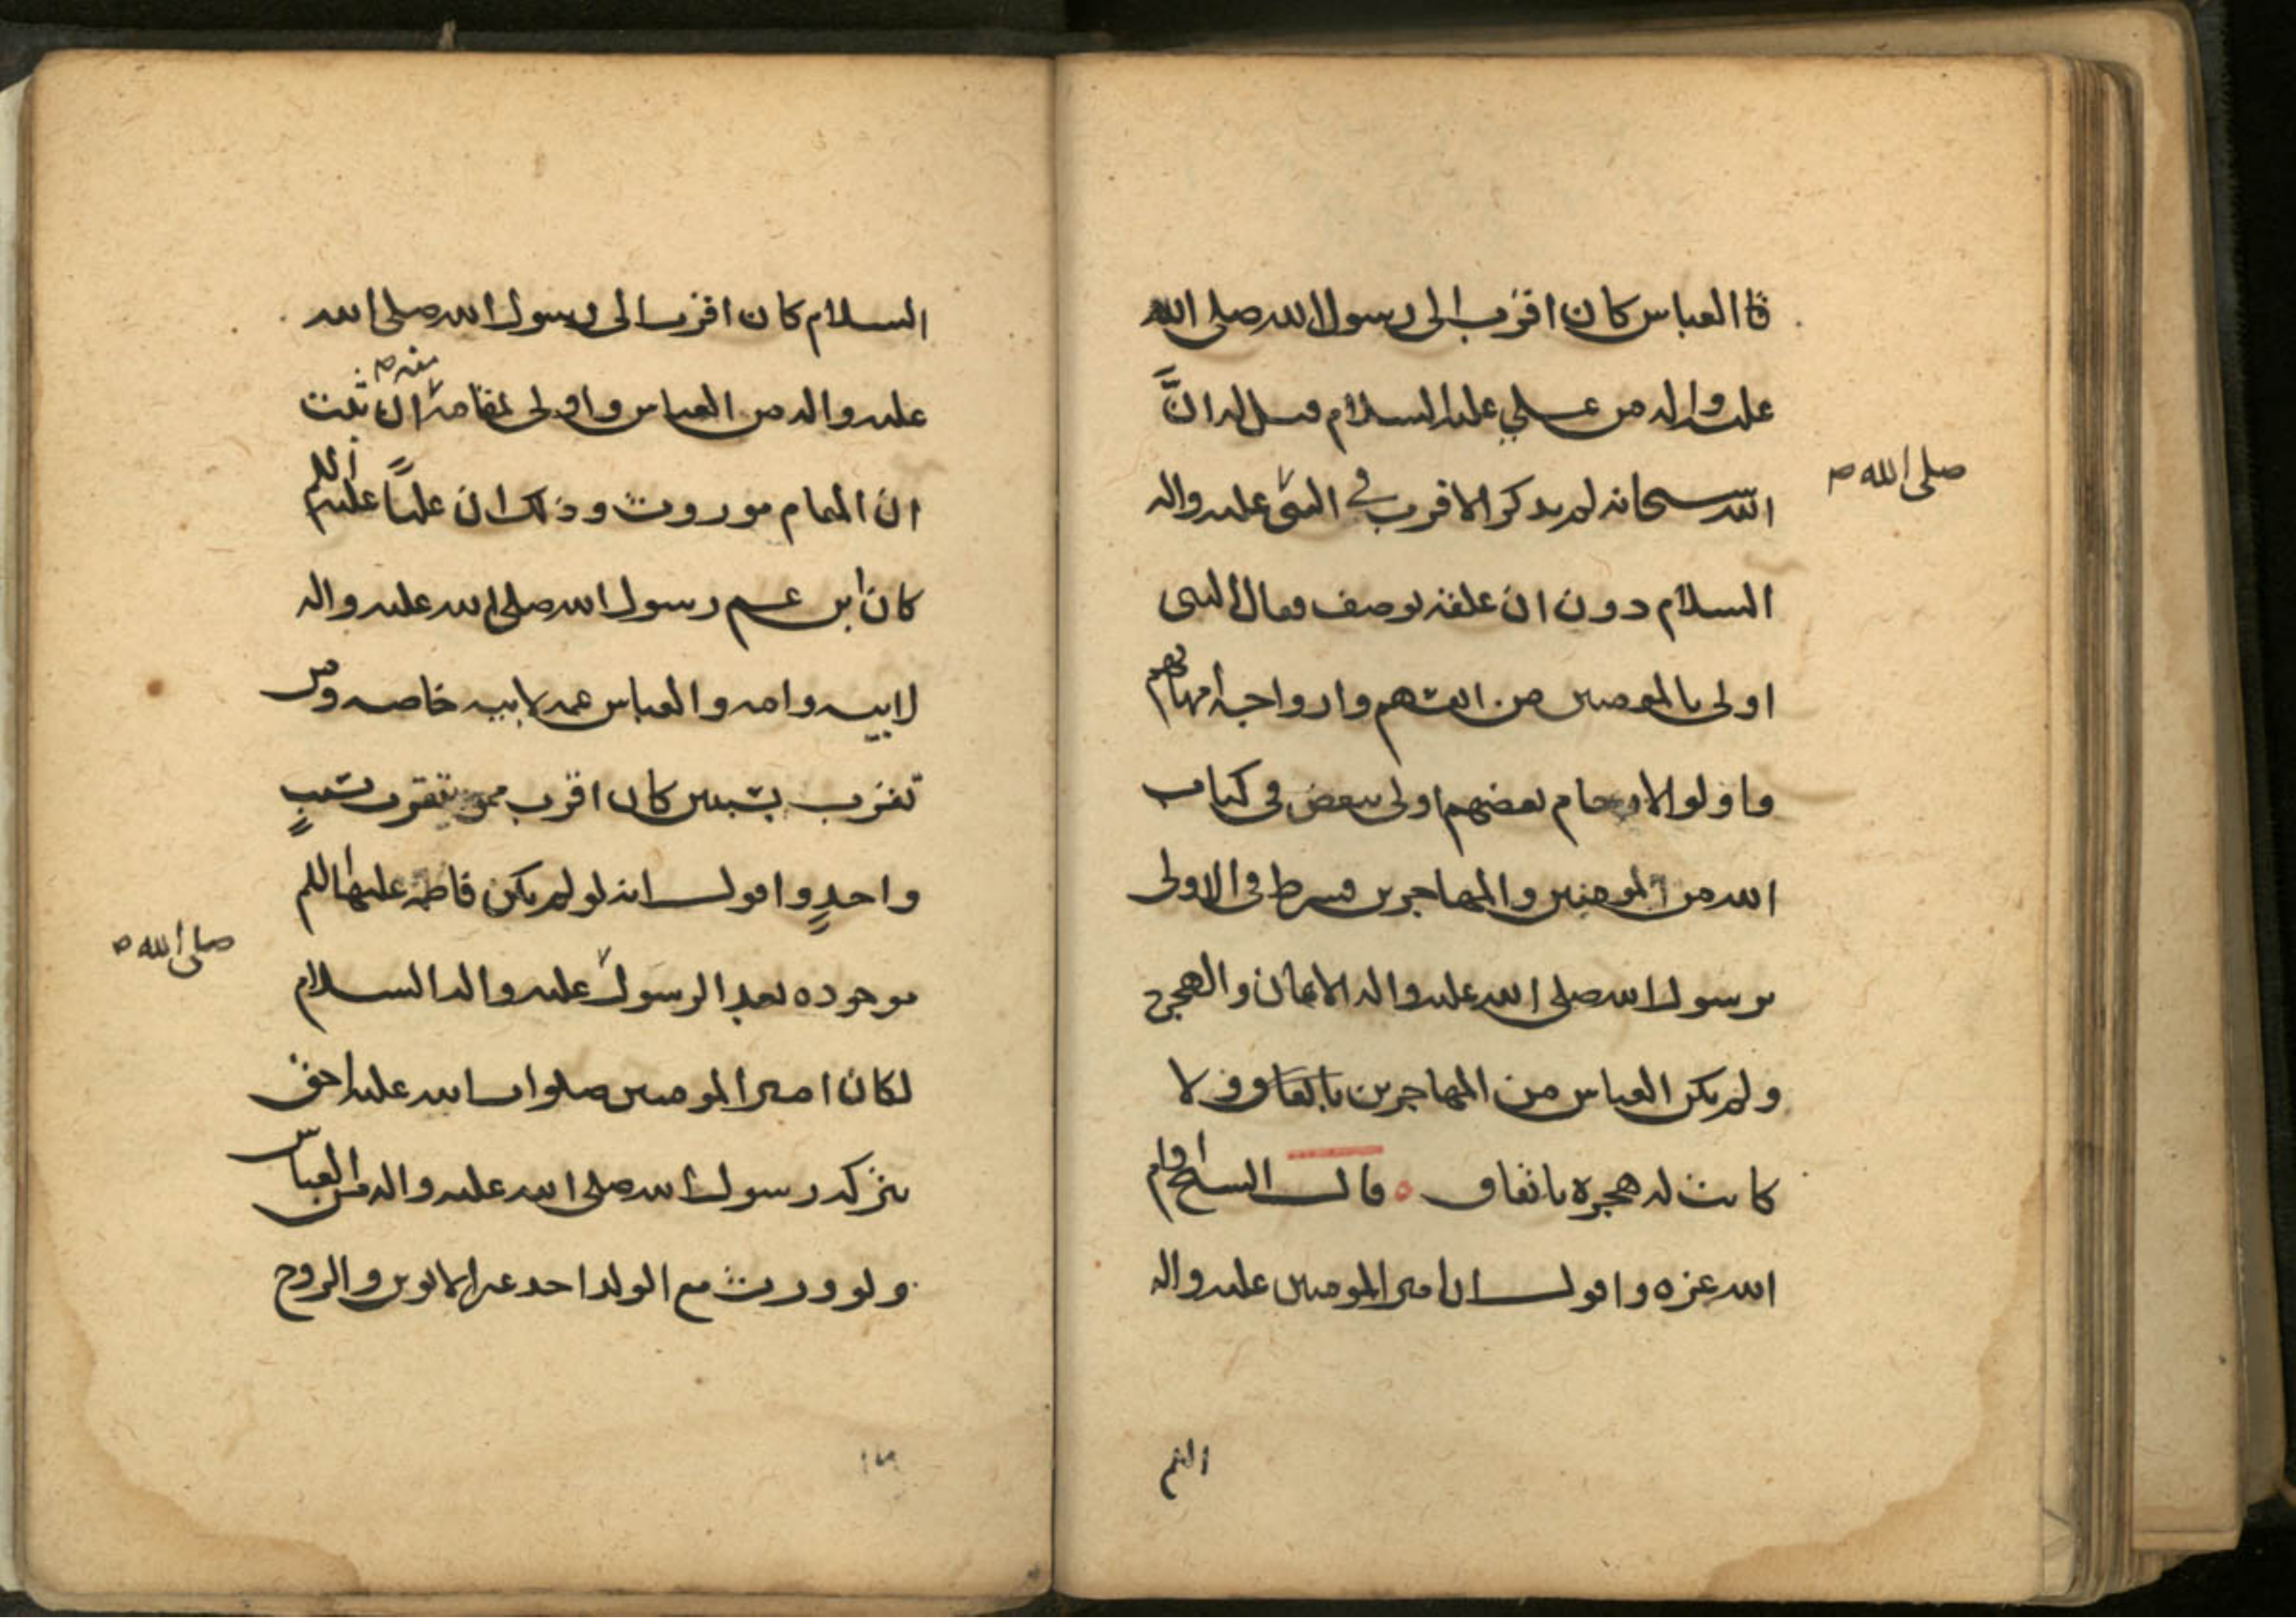 فا العباس كان اقرب الى رسول الله صلى الله
عليه واله من علي عليه السلام قيل له انَّ
الله سبحانه لم يذكر الاقرب في النبى عليه واله
صلى الله صح
السلام دون ان علقه بوصف فقال النبى
اولى بالمومنين من انفسهم وازواجه امهاتهم
واولو الارحام بعضهم اولى ببعض فى كتاب
الله من المومنين والمهاجرين فشرط فى الاولى
برسول الله صلى الله عليه واله الايمان والهجرة
ولم يكن العباس من المهاجرين ولا
كانت له هجرة باتفاق ٥ قال الشيخ ادام
الله عزه واقول ان امير المومنين عليه واله
السلم
السلام كان اقرب الى رسول الله صلى الله
عليه واله من العباس واولى بمقامه منه صح ان ثبت
ان المقام موروث وذلك ان علياً عليه السلم
كان ابن عم رسول الله صلى الله عليه واله
لابيه وامه والعباس عمه لابيه خاصه ومن
تقرب بسببين كان اقرب ممن يتقرب بسببٍ
واحدٍ واقول انه لو لم يكن فاطمة عليها السلم
موجوده بعد الرسول عليه واله السلام
صلى الله صح
لكان امير المومنين صلوات الله عليه احق
بتركه رسول الله صلى الله عليه واله من العباس
ولو ورث مع الولد احد غير الابوين والزوج